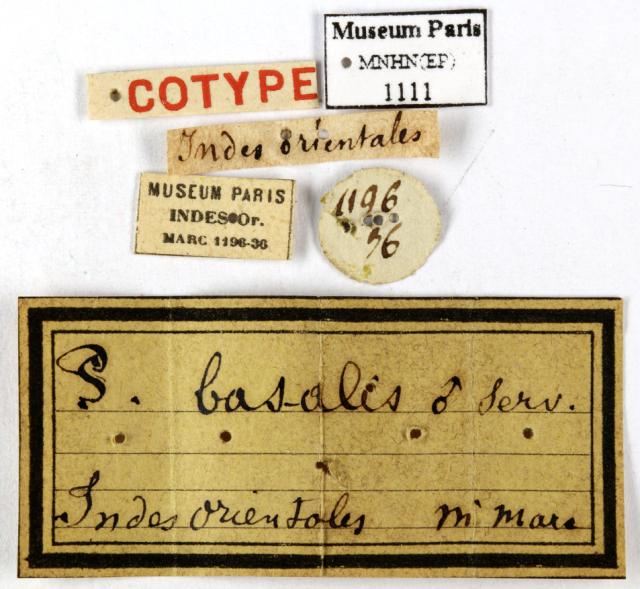 Museum Paris
MNHN(EP)
1111
COTYPE
Indes orientales
MUSEUM PARIS
INDES Or.
MARC 1196-36
1196
36
P. basalis ♂ Serv.
Indes orientales mr marc